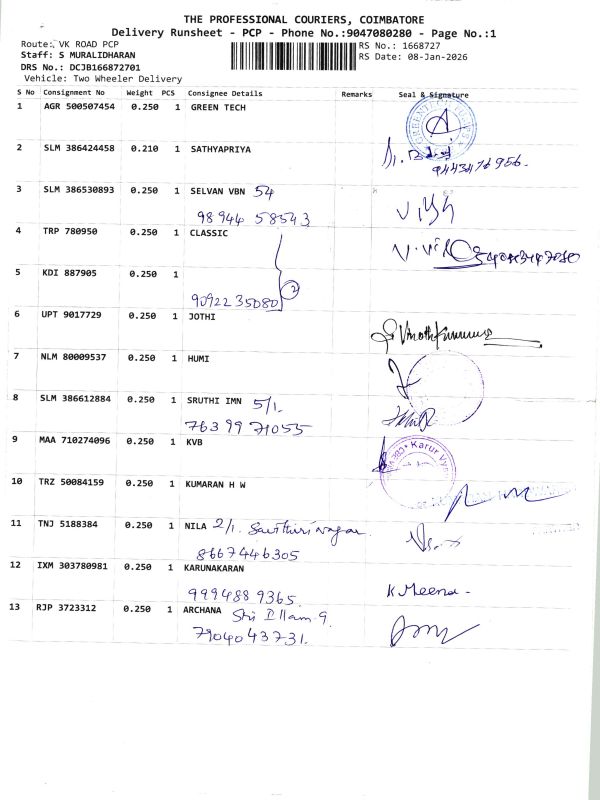 THE PROFESSIONAL COURIERS, COIMBATORE
Delivery Runsheet - PCP - Phone No.:9047080280 - Page No.:1
Route: VK ROAD PCP
RS No.: 1668727
Staff: S MURALIDHARAN
RS Date: 08-Jan-2026
DRS No.: DCJB166872701
Vehicle: Two Wheeler Delivery
S No Consignment No Weight PCS Consignee Details Remarks Seal & Signature
1 AGR 500507454 0.250 1 GREEN TECH
2 SLM 386424458 0.210 1 SATHYAPRIYA
9443476956.
3 SLM 386530893 0.250 1 SELVAN VBN 54
98944 58543
4 TRP 780950 0.250 1 CLASSIC
5 KDI 887905 0.250 1
9092235080 2
6 UPT 9017729 0.250 1 JOTHI
7 NLM 80009537 0.250 1 HUMI
8 SLM 386612884 0.250 1 SRUTHI IMN 5/1.
763 99 71055
9 MAA 710274096 0.250 1 KVB
Karur Vysya
10 TRZ 50084159 0.250 1 KUMARAN H W
11 TNJ 5188384 0.250 1 NILA 2/1. Savithiri nagar
8667446305
12 IXM 303780981 0.250 1 KARUNAKARAN
9994889365.
K Meena
13 RJP 3723312 0.250 1 ARCHANA Sri Illam 9.
7904043731.